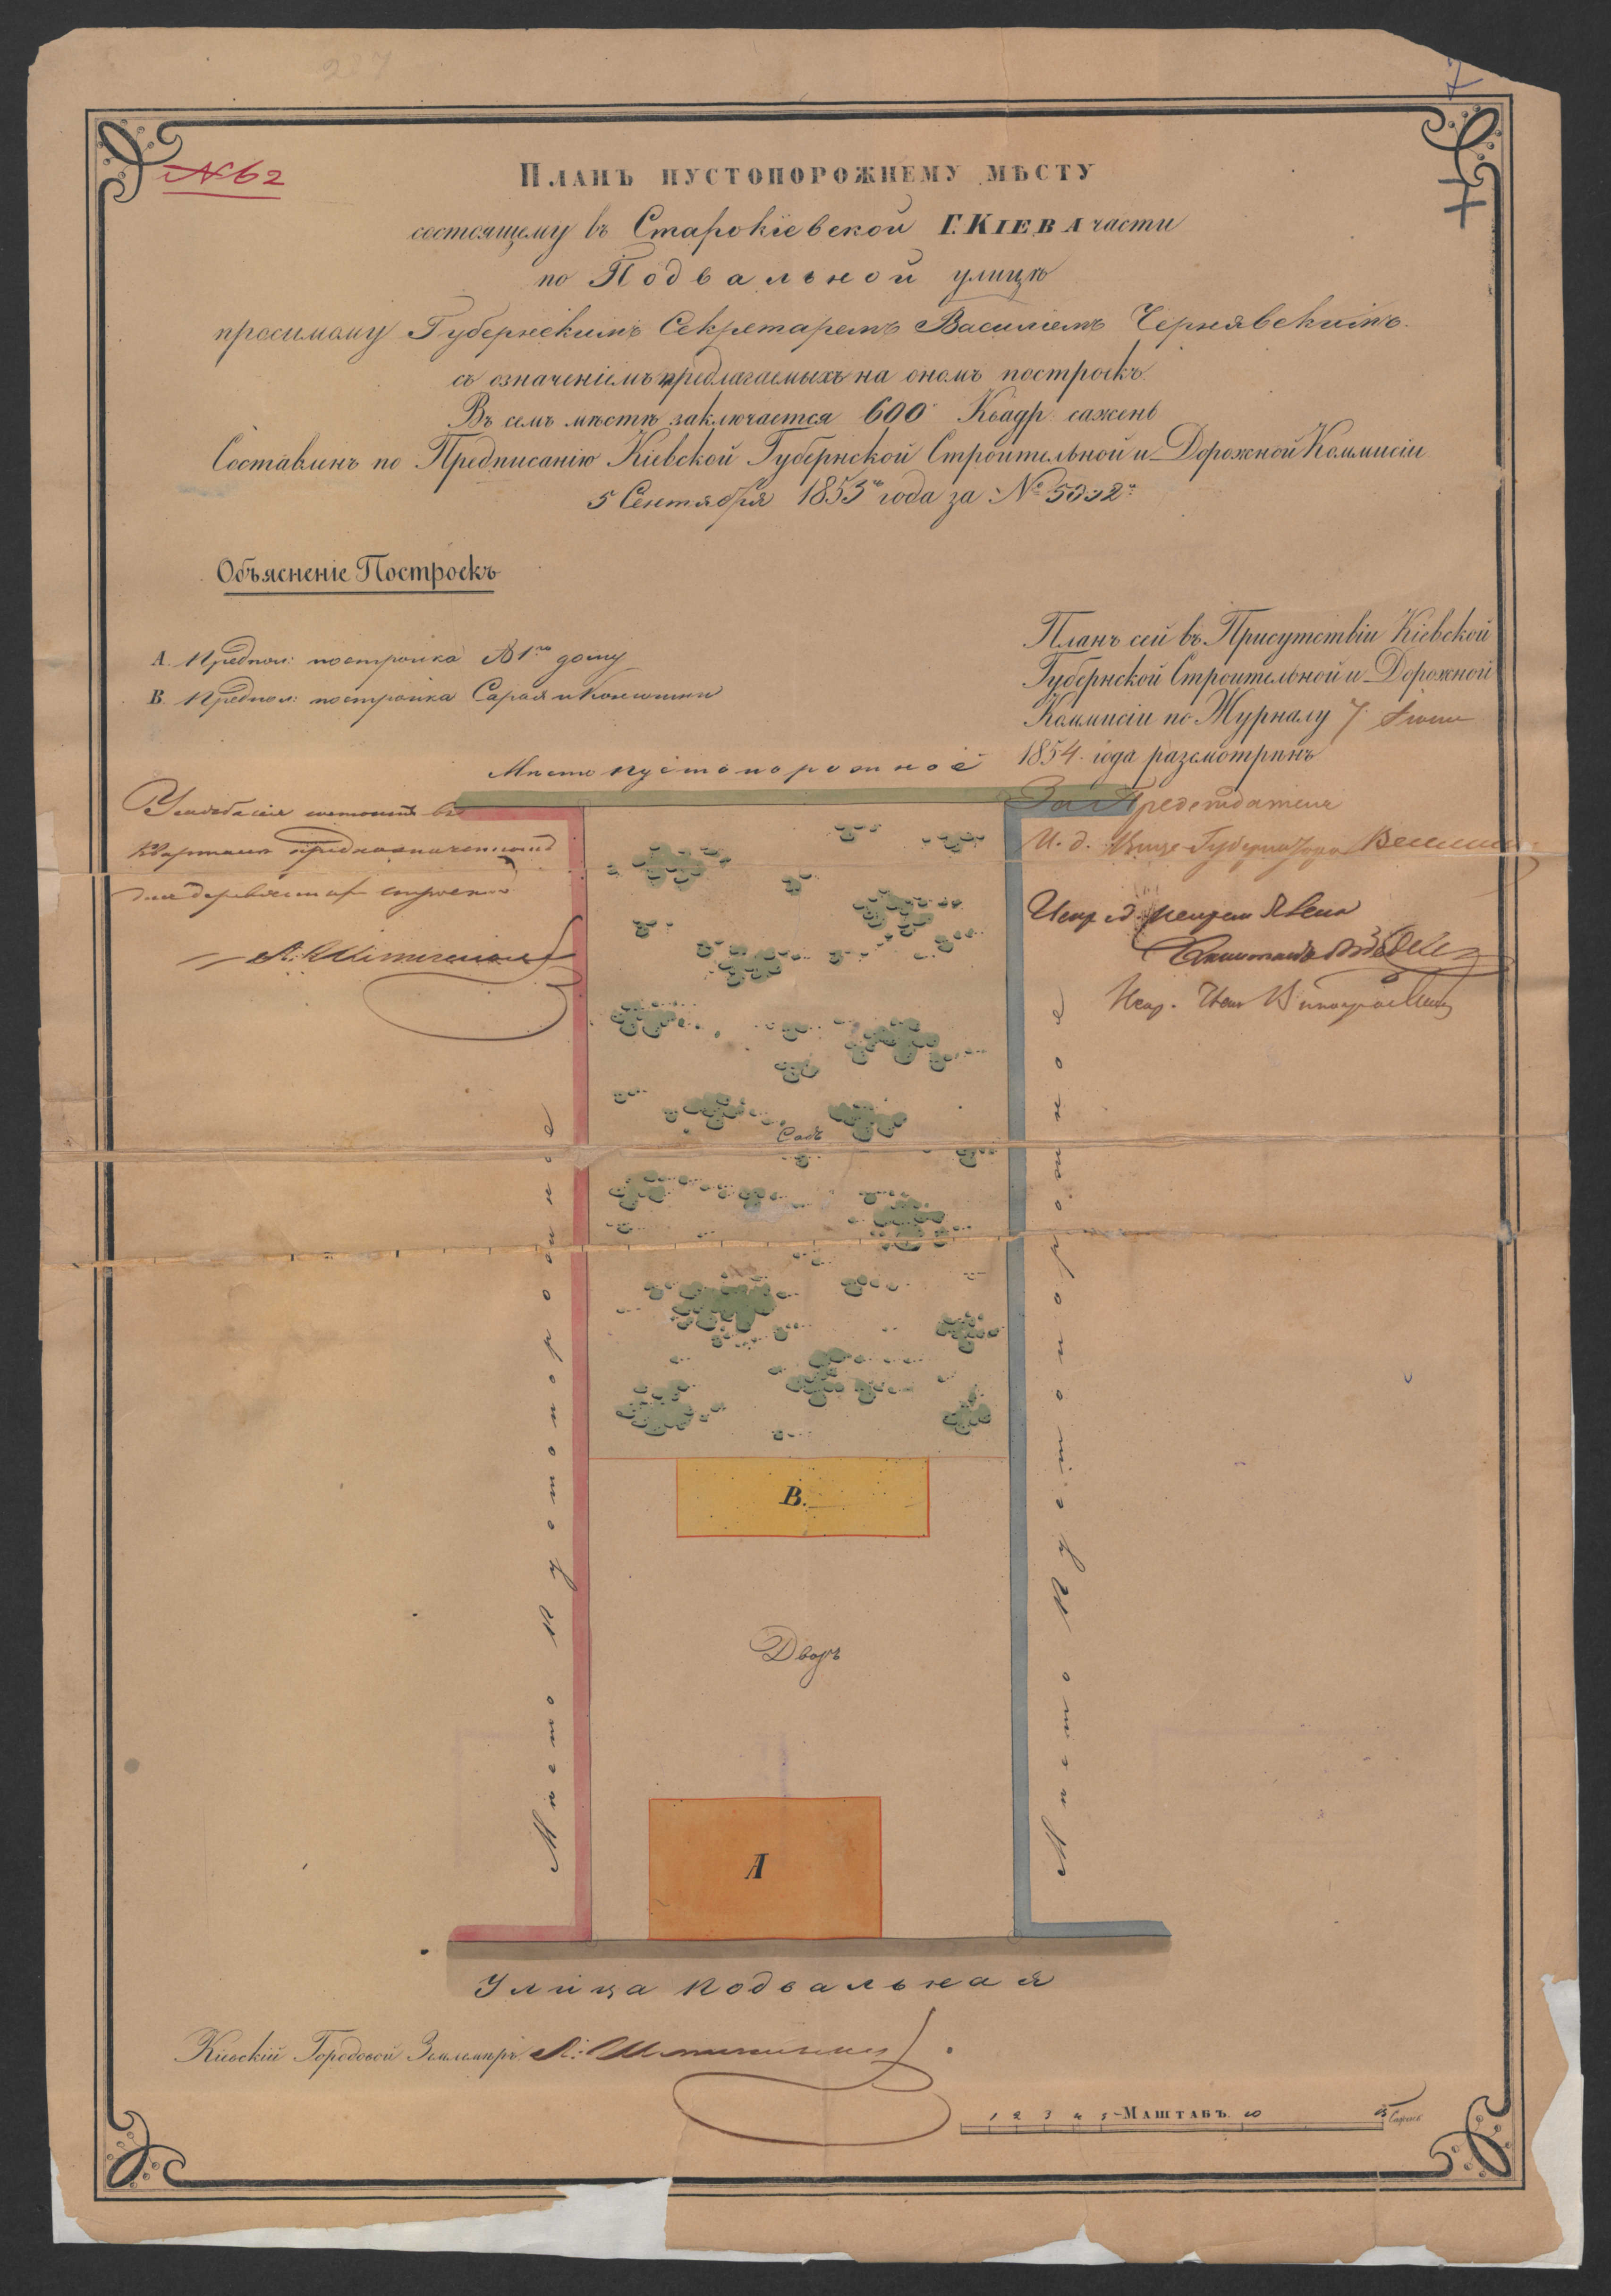 № 62
7
ПЛАНЪ ПУСТОПОРОЖНЕМУ МѢСТУ
состоящему въ Старокіевской Г. КІЕВА части
по Подвальной улицѣ
просимому Губернскимъ Секретаремъ Василіемъ Чернявскимъ.
съ означеніемъ предлагаемыхъ на ономъ построекъ.
Въ семъ мѣстѣ заключается 600 Квадр. сажень
Составленъ по Предписанію Кіевской Губернской Строительной и Дорожной Коммисіи
5 Сентября 1853го года за №
Объясненіе Построекъ
А. Предпол: постройка дому
В. Предпол: постройка Сарая и Конюшни
Планъ сей въ Присутствіи Кіевской
Губернской Строительной и Дорожной
Коммисіи по Журналу 7.
1854. года разсмотрѣнъ
Мѣсто пустопорожное
За Предсѣдателя
И. д. Вице-Губернатора
Усадьба сія состоитъ въ
Кварталѣ предназначенномъ
для деревянныхъ строеній
Мѣсто пустопорожное
Мѣсто пустопорожное
Садъ
В.
Дворъ
А
Улица Подвальная
Кіевскій Городовой Землемѣръ
1 2 3 4 5 МАШТАБЪ. 10 15 Сажень